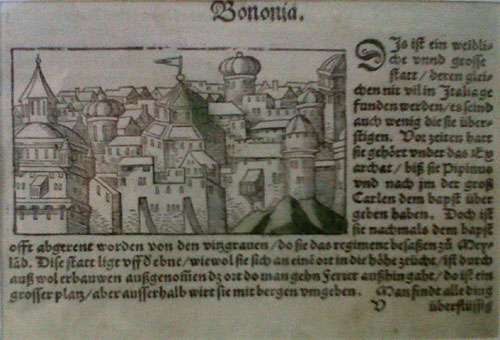 Bononia.
DJs ist ein weidli⸗
che vnnd grosse
statt / deren glei⸗
chen nit vil in Jtalia ge
funden werden / es seind
auch wenig die sie über⸗
stigen. Vor zeiten hatt
sie gehört vnder das Ex
archat / biß sie Pipinus
vnd nach jm der groß
Carlen dem bapst über
geben haben. Doch ist
sie nachmals dem bapst
offt abgerent worden von den vitzgrauen / do sie das regiment besaßen zů Mey
lād. Dise statt ligt vff d̄ ebne / wiewol sie sich an eim ort in die höhe zeücht / ist durch
auß wol erbauwen außgenom̄en dz ort do man gehn Ferrer außhin gaht / do ist ein
grosser platz / aber ausserhalb wirt sie mit bergen vmgeben. Man findt alle ding
V überflüssig